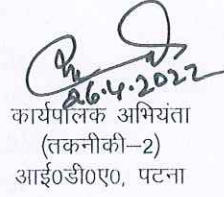 26.4.2022
कार्यपालक अभियंता
(तकनीकी–2)
आई०डी०ए०, पटना